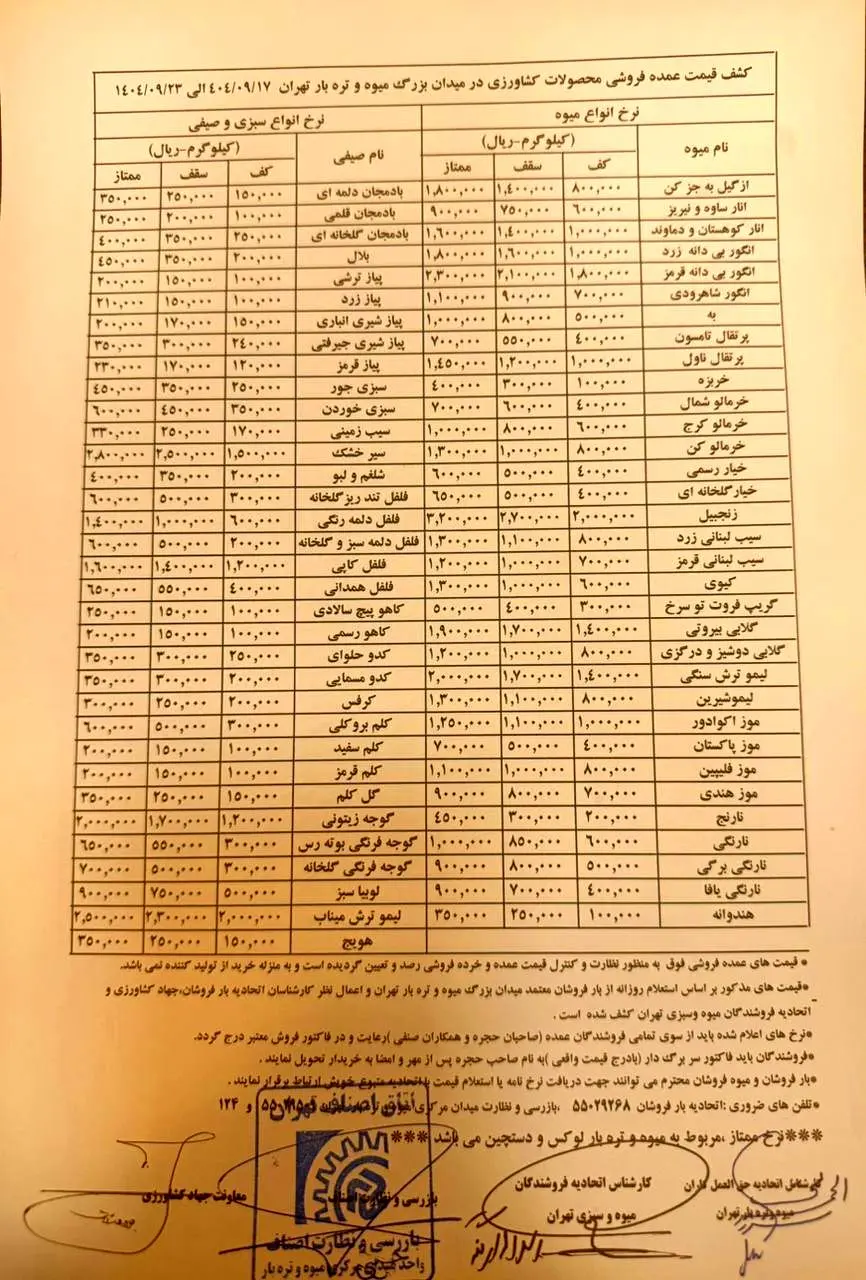 کشف قیمت عمده فروشی محصولات کشاورزی در میدان بزرگ میوه و تره بار تهران ۴۰۴/۰۹/۱۷ الی ۱۴۰۴/۰۹/۲۳
نرخ انواع میوه نرخ انواع سبزی و صیفی
نام میوه (کیلوگرم-ریال) نام صیفی (کیلوگرم-ریال)
کف سقف ممتاز کف سقف ممتاز
ازگیل به جز کن ۸۰۰,۰۰۰ ۱,۴۰۰,۰۰۰ ۱,۸۰۰,۰۰۰ بادمجان دلمه ای ۱۵۰,۰۰۰ ۲۵۰,۰۰۰ ۳۵۰,۰۰۰
انار ساوه و نیریز ۶۰۰,۰۰۰ ۷۵۰,۰۰۰ ۹۰۰,۰۰۰ بادمجان قلمی ۱۰۰,۰۰۰ ۲۰۰,۰۰۰ ۲۵۰,۰۰۰
انار کوهستان و دماوند ۱,۰۰۰,۰۰۰ ۱,۴۰۰,۰۰۰ ۱,۶۰۰,۰۰۰ بادمجان گلخانه ای ۲۵۰,۰۰۰ ۳۵۰,۰۰۰ ۴۰۰,۰۰۰
انگور بی دانه زرد ۱,۰۰۰,۰۰۰ ۱,۶۰۰,۰۰۰ ۱,۸۰۰,۰۰۰ بلال ۲۰۰,۰۰۰ ۳۵۰,۰۰۰ ۴۵۰,۰۰۰
انگور بی دانه قرمز ۱,۸۰۰,۰۰۰ ۲,۱۰۰,۰۰۰ ۲,۳۰۰,۰۰۰ پیاز ترشی ۱۰۰,۰۰۰ ۱۵۰,۰۰۰ ۲۰۰,۰۰۰
انگور شاهرودی ۷۰۰,۰۰۰ ۹۰۰,۰۰۰ ۱,۱۰۰,۰۰۰ پیاز زرد ۱۰۰,۰۰۰ ۱۵۰,۰۰۰ ۲۱۰,۰۰۰
به ۵۰۰,۰۰۰ ۸۰۰,۰۰۰ ۱,۰۰۰,۰۰۰ پیاز شیری انباری ۱۵۰,۰۰۰ ۱۷۰,۰۰۰ ۲۰۰,۰۰۰
پرتقال تامسون ۴۰۰,۰۰۰ ۵۵۰,۰۰۰ ۷۰۰,۰۰۰ پیاز شیری جیرفتی ۲۴۰,۰۰۰ ۳۰۰,۰۰۰ ۳۵۰,۰۰۰
پرتقال ناول ۱,۰۰۰,۰۰۰ ۱,۲۰۰,۰۰۰ ۱,۴۵۰,۰۰۰ پیاز قرمز ۱۲۰,۰۰۰ ۱۷۰,۰۰۰ ۲۳۰,۰۰۰
خربزه ۱۰۰,۰۰۰ ۳۰۰,۰۰۰ ۴۰۰,۰۰۰ سبزی جور ۲۵۰,۰۰۰ ۳۵۰,۰۰۰ ۴۵۰,۰۰۰
خرمالو شمال ۴۰۰,۰۰۰ ۶۰۰,۰۰۰ ۷۰۰,۰۰۰ سبزی خوردن ۳۵۰,۰۰۰ ۴۵۰,۰۰۰ ۶۰۰,۰۰۰
خرمالو کرج ۶۰۰,۰۰۰ ۸۰۰,۰۰۰ ۱,۰۰۰,۰۰۰ سیب زمینی ۱۷۰,۰۰۰ ۲۵۰,۰۰۰ ۳۳۰,۰۰۰
خرمالو کن ۸۰۰,۰۰۰ ۱,۰۰۰,۰۰۰ ۱,۳۰۰,۰۰۰ سیر خشک ۱,۵۰۰,۰۰۰ ۲,۵۰۰,۰۰۰ ۲,۸۰۰,۰۰۰
خیار رسمی ۴۰۰,۰۰۰ ۵۰۰,۰۰۰ ۶۰۰,۰۰۰ شلغم و لبو ۲۰۰,۰۰۰ ۳۵۰,۰۰۰ ۴۰۰,۰۰۰
خیارگلخانه ای ۴۰۰,۰۰۰ ۵۰۰,۰۰۰ ۶۵۰,۰۰۰ فلفل تند ریزگلخانه ۳۰۰,۰۰۰ ۵۰۰,۰۰۰ ۶۰۰,۰۰۰
زنجبیل ۲,۰۰۰,۰۰۰ ۲,۷۰۰,۰۰۰ ۳,۲۰۰,۰۰۰ فلفل دلمه رنگی ۶۰۰,۰۰۰ ۱,۰۰۰,۰۰۰ ۱,۴۰۰,۰۰۰
سیب لبنانی زرد ۸۰۰,۰۰۰ ۱,۱۰۰,۰۰۰ ۱,۳۰۰,۰۰۰ فلفل دلمه سبز و گلخانه ۲۰۰,۰۰۰ ۵۰۰,۰۰۰ ۶۰۰,۰۰۰
سیب لبنانی قرمز ۷۰۰,۰۰۰ ۱,۰۰۰,۰۰۰ ۱,۲۰۰,۰۰۰ فلفل کاپی ۱,۲۰۰,۰۰۰ ۱,۴۰۰,۰۰۰ ۱,۶۰۰,۰۰۰
کیوی ۶۰۰,۰۰۰ ۱,۰۰۰,۰۰۰ ۱,۳۰۰,۰۰۰ فلفل همدانی ۴۰۰,۰۰۰ ۵۵۰,۰۰۰ ۶۵۰,۰۰۰
گریپ فروت تو سرخ ۳۰۰,۰۰۰ ۴۰۰,۰۰۰ ۵۰۰,۰۰۰ کاهو پیچ سالادی ۱۰۰,۰۰۰ ۱۵۰,۰۰۰ ۲۵۰,۰۰۰
گلابی بیروتی ۱,۴۰۰,۰۰۰ ۱,۷۰۰,۰۰۰ ۱,۹۰۰,۰۰۰ کاهو رسمی ۱۰۰,۰۰۰ ۱۵۰,۰۰۰ ۲۰۰,۰۰۰
گلابی دوشیز و درگزی ۸۰۰,۰۰۰ ۱,۰۰۰,۰۰۰ ۱,۲۰۰,۰۰۰ کدو حلوای ۲۵۰,۰۰۰ ۳۰۰,۰۰۰ ۳۵۰,۰۰۰
لیمو ترش سنگی ۱,۴۰۰,۰۰۰ ۱,۷۰۰,۰۰۰ ۲,۰۰۰,۰۰۰ کدو مسمایی ۲۰۰,۰۰۰ ۳۰۰,۰۰۰ ۳۵۰,۰۰۰
لیموشیرین ۸۰۰,۰۰۰ ۱,۱۰۰,۰۰۰ ۱,۳۰۰,۰۰۰ کرفس ۲۰۰,۰۰۰ ۲۵۰,۰۰۰ ۳۰۰,۰۰۰
موز اکوادور ۱,۰۰۰,۰۰۰ ۱,۱۰۰,۰۰۰ ۱,۲۵۰,۰۰۰ کلم بروکلی ۳۰۰,۰۰۰ ۵۰۰,۰۰۰ ۶۰۰,۰۰۰
موز پاکستان ۴۰۰,۰۰۰ ۵۰۰,۰۰۰ ۷۰۰,۰۰۰ کلم سفید ۱۰۰,۰۰۰ ۱۵۰,۰۰۰ ۲۰۰,۰۰۰
موز فلیپین ۸۰۰,۰۰۰ ۱,۰۰۰,۰۰۰ ۱,۱۰۰,۰۰۰ کلم قرمز ۱۰۰,۰۰۰ ۱۵۰,۰۰۰ ۲۰۰,۰۰۰
موز هندی ۷۰۰,۰۰۰ ۸۰۰,۰۰۰ ۹۰۰,۰۰۰ گل کلم ۱۵۰,۰۰۰ ۲۵۰,۰۰۰ ۳۵۰,۰۰۰
نارنج ۲۰۰,۰۰۰ ۳۰۰,۰۰۰ ۴۵۰,۰۰۰ گوجه زیتونی ۱,۲۰۰,۰۰۰ ۱,۷۰۰,۰۰۰ ۲,۰۰۰,۰۰۰
نارنگی ۶۰۰,۰۰۰ ۸۵۰,۰۰۰ ۱,۰۰۰,۰۰۰ گوجه فرنگی بوته رس ۳۰۰,۰۰۰ ۵۵۰,۰۰۰ ۶۵۰,۰۰۰
نارنگی برگی ۵۰۰,۰۰۰ ۸۰۰,۰۰۰ ۹۰۰,۰۰۰ گوجه فرنگی گلخانه ۳۰۰,۰۰۰ ۵۰۰,۰۰۰ ۷۰۰,۰۰۰
نارنگی یافا ۴۰۰,۰۰۰ ۷۰۰,۰۰۰ ۹۰۰,۰۰۰ لوبیا سبز ۵۰۰,۰۰۰ ۷۵۰,۰۰۰ ۹۰۰,۰۰۰
هندوانه ۱۰۰,۰۰۰ ۲۵۰,۰۰۰ ۳۵۰,۰۰۰ لیمو ترش میناب ۲,۰۰۰,۰۰۰ ۲,۳۰۰,۰۰۰ ۲,۵۰۰,۰۰۰
هویج ۱۵۰,۰۰۰ ۲۵۰,۰۰۰ ۳۵۰,۰۰۰
* قیمت های عمده فروشی فوق به منظور نظارت و کنترل قیمت عمده و خرده فروشی رصد و تعیین گردیده است و به منزله خرید از تولید کننده نمی باشد.
*قیمت های مذکور بر اساس استعلام روزانه از بار فروشان معتمد میدان بزرگ میوه و تره بار تهران و اعمال نظر کارشناسان اتحادیه بار فروشان،جهاد کشاورزی و
اتحادیه فروشندگان میوه وسبزی تهران کشف شده است .
*نرخ های اعلام شده باید از سوی تمامی فروشندگان عمده (صاحبان حجره و همکاران صنفی )رعایت و در فاکتور فروش معتبر درج گردد.
*فروشندگان باید فاکتور سر برگ دار (بادرج قیمت واقعی )به نام صاحب حجره پس از مهر و امضا به خریدار تحویل نمایند .
*بار فروشان و میوه فروشان محترم می توانند جهت دریافت نرخ نامه یا استعلام قیمت با اتحادیه متبوع خویش ارتباط برقرار نمایند .
*تلفن های ضروری :اتحادیه بار فروشان ۵۵۰۲۹۲۶۸ ،بازرسی و نظارت میدان مرکزی و ۱۲۴
***نرخ ممتاز ،مربوط به میوه و تره بار لوکس و دستچین می باشد ***
اتاق اصناف تهران
کارشناس اتحادیه حق العمل کاران کارشناس اتحادیه فروشندگان بازرسی و نظارت اصناف معاونت جهاد کشاورزی
میوه و تره بار تهران میوه و سبزی تهران
بازرسی و نظارت اصناف
واحد میدان مرکزی میوه و تره بار